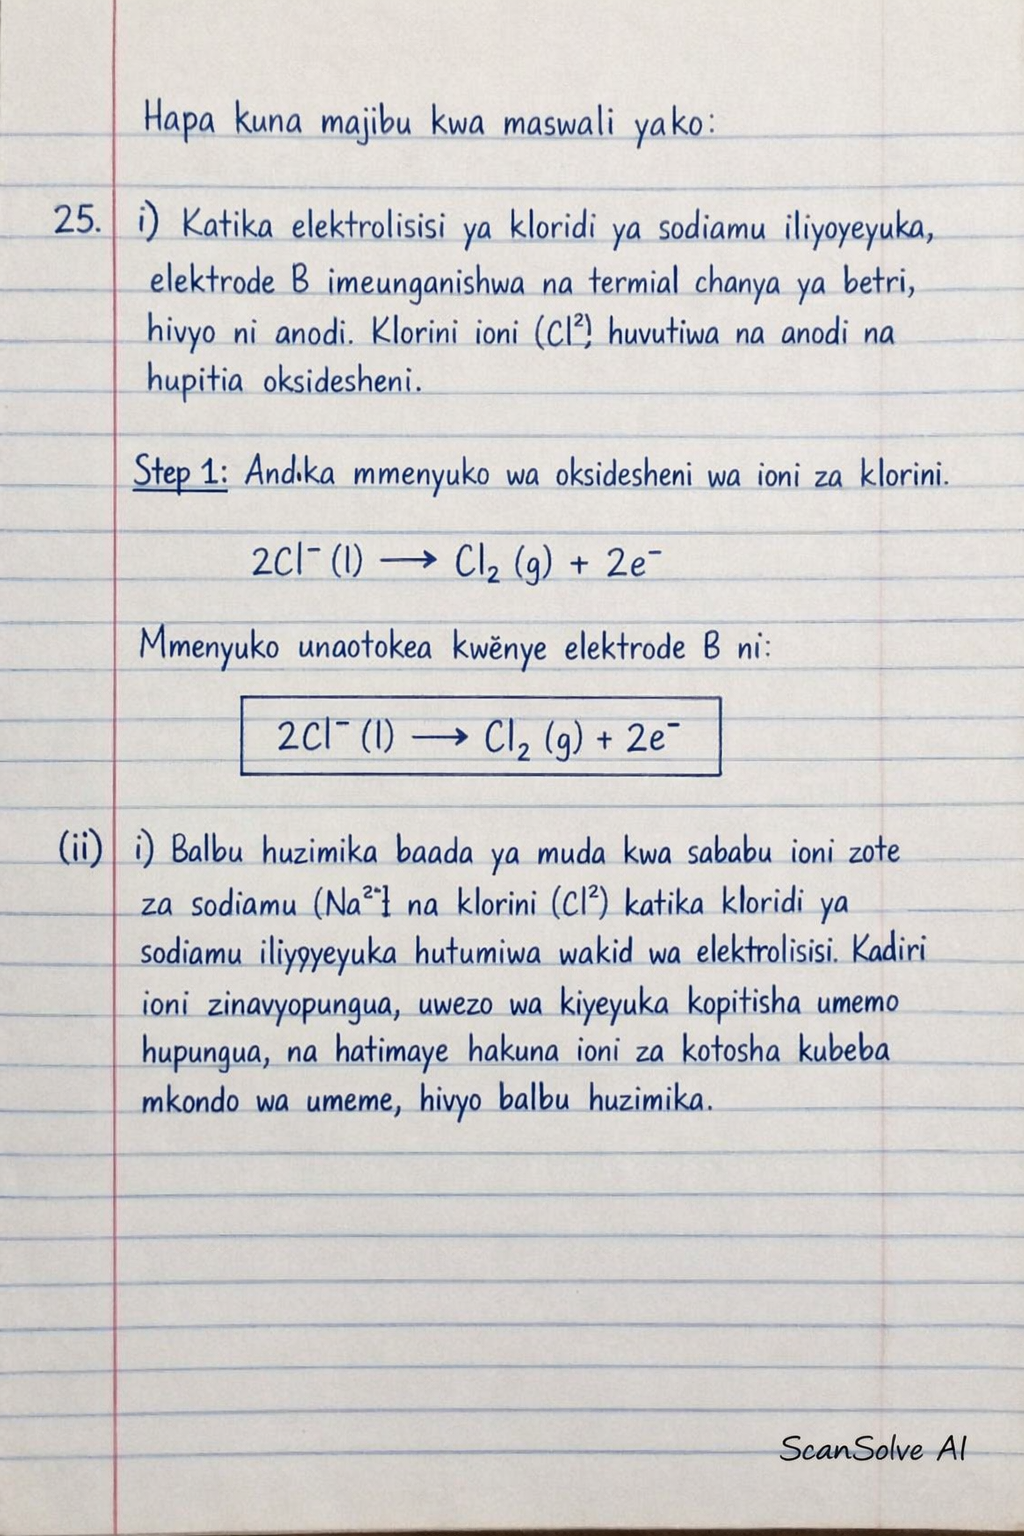 Hapa kuna majibu kwa maswali yako:
25. i) Katika elektrolisisi ya kloridi ya sodiamu iliyoyeyuka,
elektrode B imeunganishwa na termial chanya ya betri,
hivyo ni anodi. Klorini ioni (Cl²⁾, huvutiwa na anodi na
hupitia oksidesheni.
Step 1: Andika mmenyuko wa oksidesheni wa ioni za klorini.
2Cl⁻ (l) → Cl₂ (g) + 2e⁻
Mmenyuko unaotokea kwĕnye elektrode B ni:
2Cl⁻ (l) → Cl₂ (g) + 2e⁻
(ii) i) Balbu huzimika baada ya muda kwa sababu ioni zote
za sodiamu (Na²⁺] na klorini (Cl²) katika kloridi ya
sodiamu iliyoyeyuka hutumiwa wakid wa elektrolisisi. Kadiri
ioni zinavyopungua, uwezo wa kiyeyuka kopitisha umemo
hupungua, na hatimaye hakuna ioni za kotosha kubeba
mkondo wa umeme, hivyo balbu huzimika.
ScanSolve AI